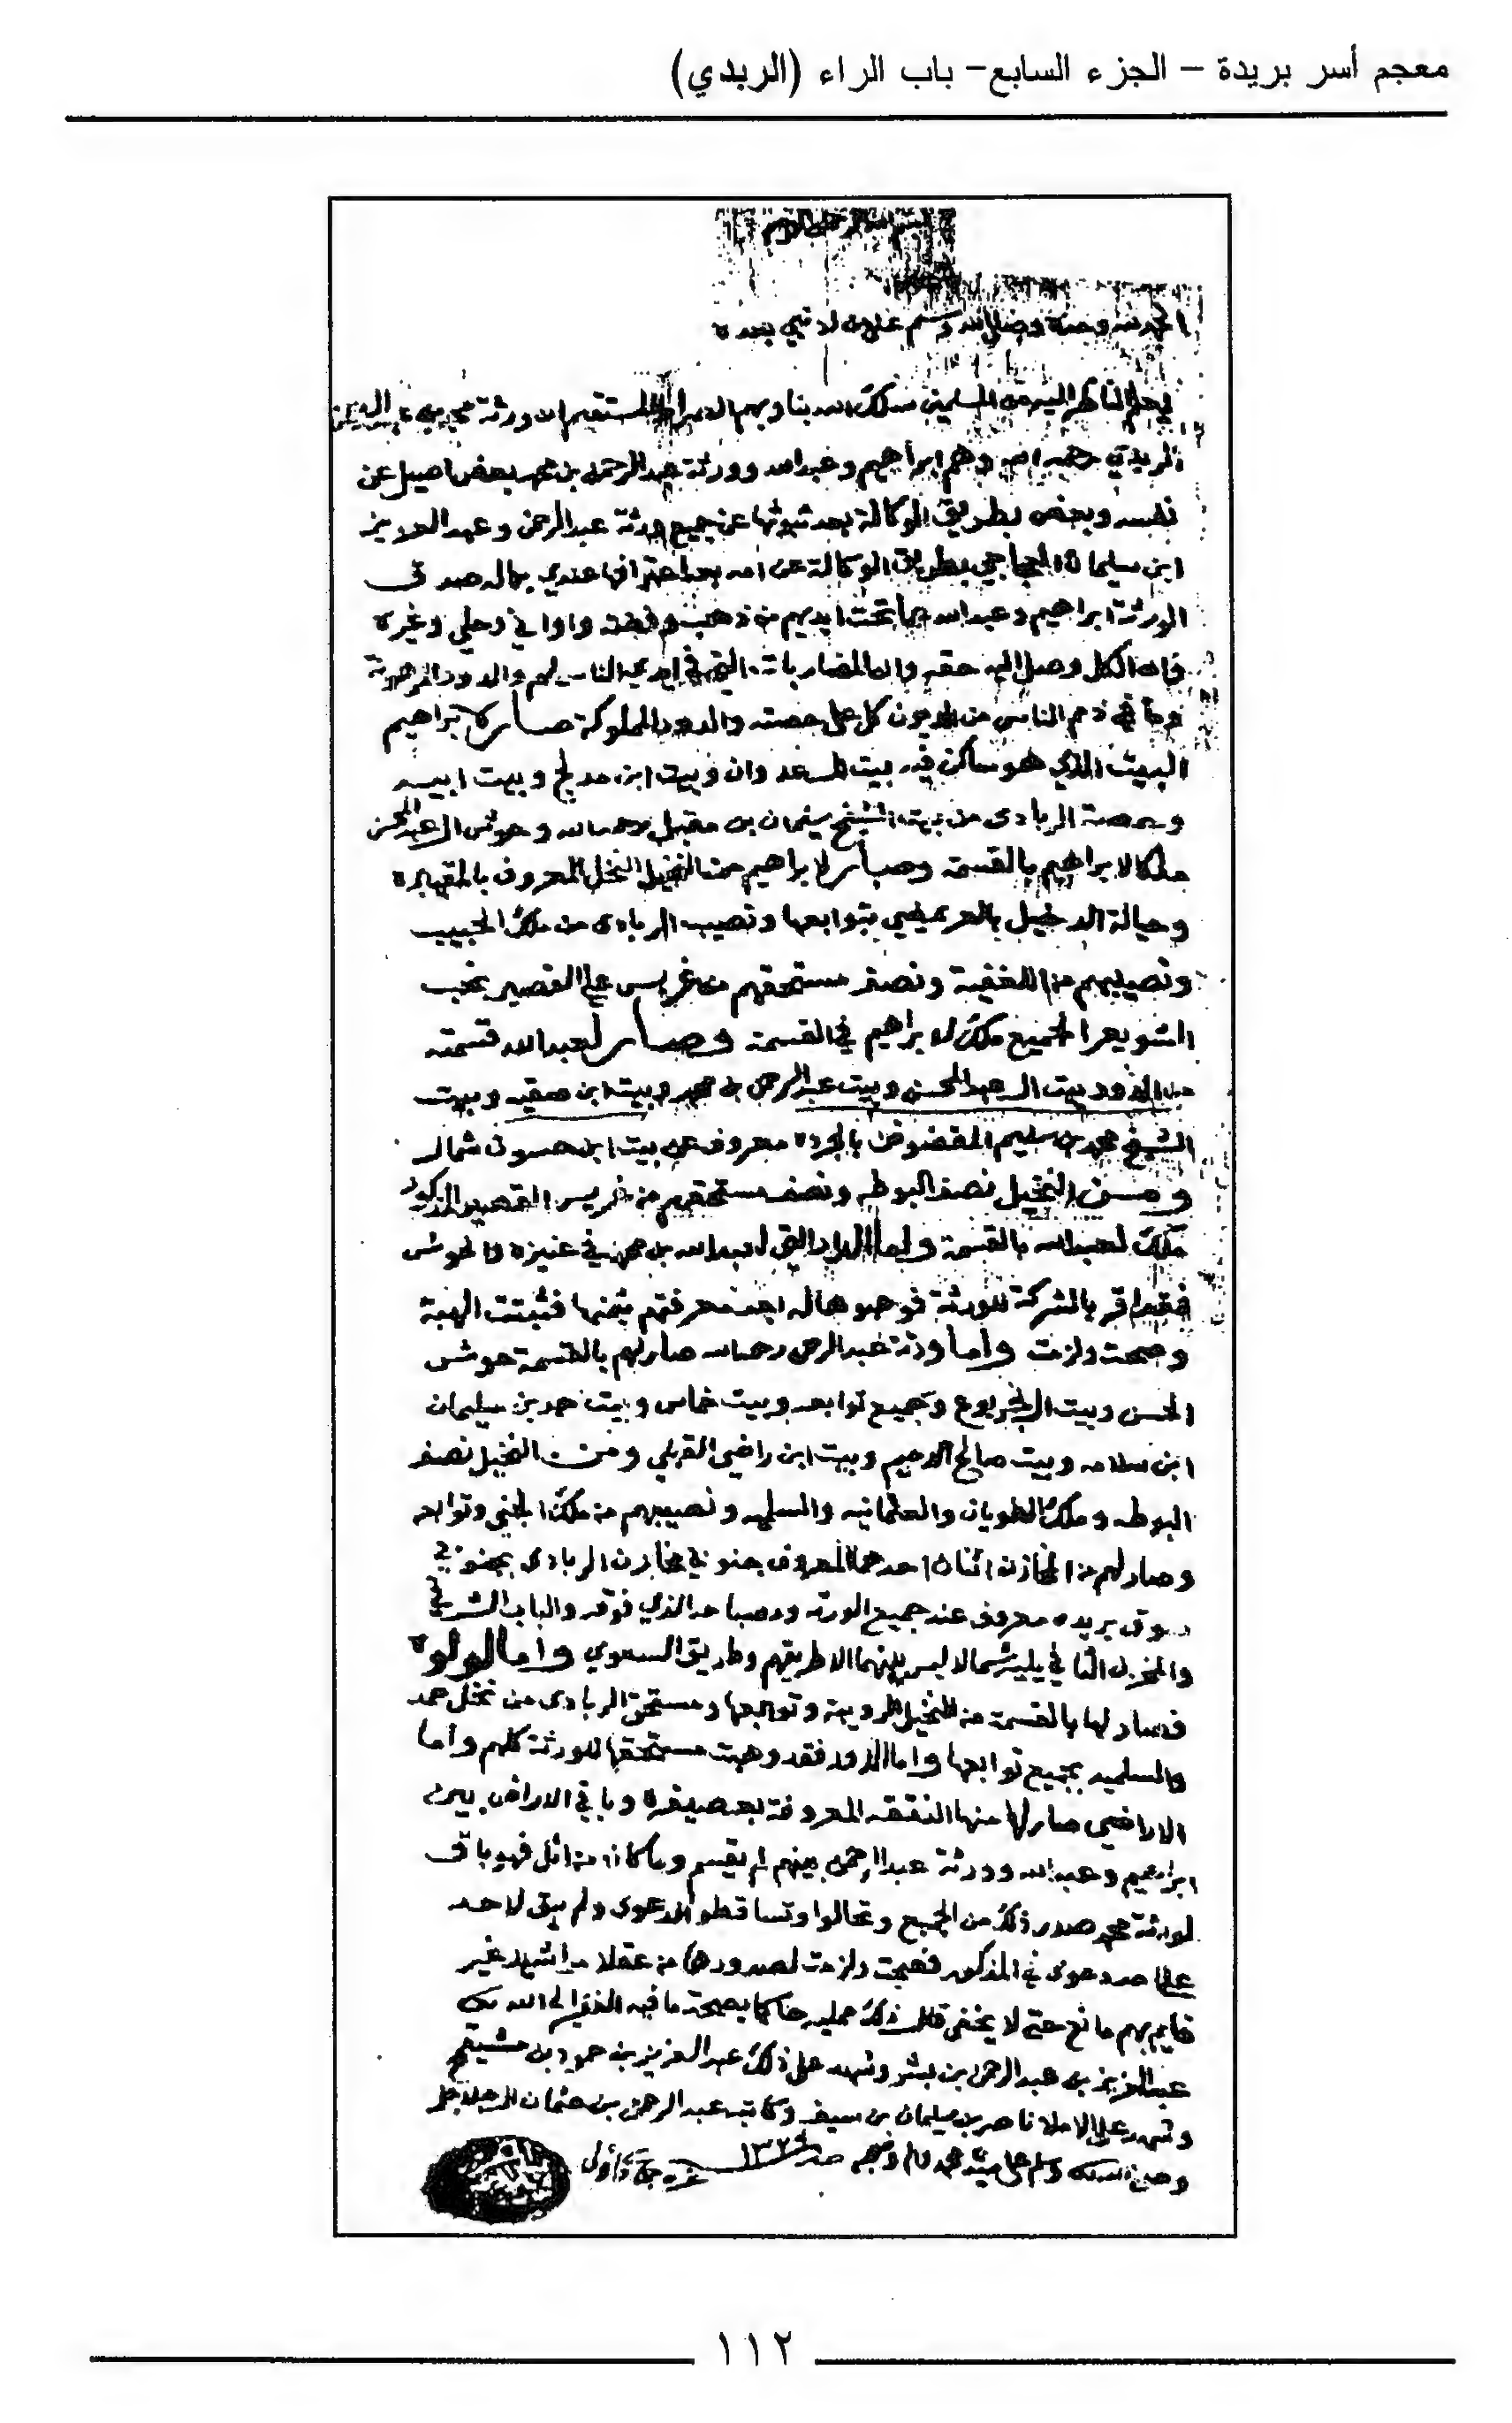 معجم أسر بريدة – الجزء السابع– باب الراء (الربدي)
بسم الله الرحمن الرحيم
الحمد لله وحده وصلى الله وسلم على من لا نبي بعده
ليعلم الناظر اليه من المسلمين سلك الله بنا وبهم الصراط المستقيم ان ورثة محمد بن عبدالرحمن
الربدي رحمه الله وهم ابراهيم وعبدالله وورثة عبدالرحمن بن محمد بعض اصيل عن
نفسه وبعض بطريق الوكالة بعد ثبوتها عن جميع ورثة عبدالرحمن وعبدالعزيز
ابن سليمان بطريق الوكالة عن امه بعد اعترافها عندي بما له صدق
الورثة ابراهيم وعبدالله بما تحت ايديهم من ذهب وفضة واواني وحلي وغيره
فان الكل وصل اليه حقه والمضاربات التي في ايدي الناس لهم والدور المرهونة
وما في ذمم الناس من الديون كل على حصته والدور المملوكة صار لابراهيم
البيت الذي هو ساكن فيه بيت السعدوان وبيت ابن مدلج وبيت ابيه
وحصة الربادى من بيت الشيخ سليمان بن مقبل رحمه الله وحوش العبدالمحسن
ملكا لابراهيم بالقسمة وصار لابراهيم من النخيل النخل المعروف بالمقيبره
وحيالة الدخيل بالعريمضي بتوابعها ونصيب الربادى من ملك الحبيب
ونصيبهم من ونصف مستحقهم من غريس على القصير بخب
الشويعر الجميع ملك لابراهيم في القسمة وصار لعبدالله قسمته
من الدور بيت العبدالمحسن وبيت عبدالرحمن بن محمد وبيت ابن صقيه وبيت
الشيخ محمد بن سليم بالجرده معروف عن بيت ابن حسون شمال
ومن النخيل نصف البوطه ونصف مستحقهم من غريس القصير المذكور
ملك لعبدالله بالقسمة واما الدار التي لعبدالله بن محمد في عنيزه والحوش
فقد اقر بالشركة للورثة فوهبوها له بعد معرفتهم بثمنها فثبتت الهبة
وصحت ولزمت واما ورثة عبدالرحمن رحمه الله صار لهم بالقسمة حوش
المحسن وبيت الجربوع وجميع توابعه وبيت خماس وبيت حمد بن سليمان
ابن سلامه وبيت صالح الدحيم وبيت ابن راضي القبلي ومن النخيل نصف
البوطه وملك الطويان والعثمانيه والسلميه ونصيبهم من ملك الجني وتوابعه
وصار لهم من المخازن اثنان احدهما المعروف جنوبي مخازن الربادى بجنوبي
سوق بريده معروف عند جميع الورثه ومصباحه الذي فوقه والباب الشرقي
والمخزن الثاني يليه شمالا ليس بينهما الا طريقهم وطريق السعوي واما لولوه
فصار لها بالقسمة من النخيل الرويبيه وتوابعها ومستحق الربادى من نخل حمد
والسلميه بجميع توابعها واما الدور فقد وهبت مستحقها للورثة كلهم واما
الاراضي صار لها منها النققه المعروفة بعصيفره وباقي الاراضي بين
ابراهيم وعبدالله وورثة عبدالرحمن بينهم لم يقسم وما كان من اثل فهو باقي
لورثة محمد صدر ذلك من الجميع وتحالوا وتساقطوا الدعوى ولم يبق لاحد
على احد دعوى في المذكور فصحت ولزمت لصدورها من عقلا مراشيد غير
قايم بهم مانع حتى لا يخفى قال ذلك ممليه حاكما بصحة ما فيه الفقير الى الله
عبدالعزيز بن عبدالرحمن بن بشر وشهد على ذلك عبدالعزيز بن حمود بن مشيقح
وشهد على الاملا ناصر بن سليمان بن سيف وكاتبه عبدالرحمن بن عثمان
وصلى الله وسلم على محمد واله وصحبه
١١٢